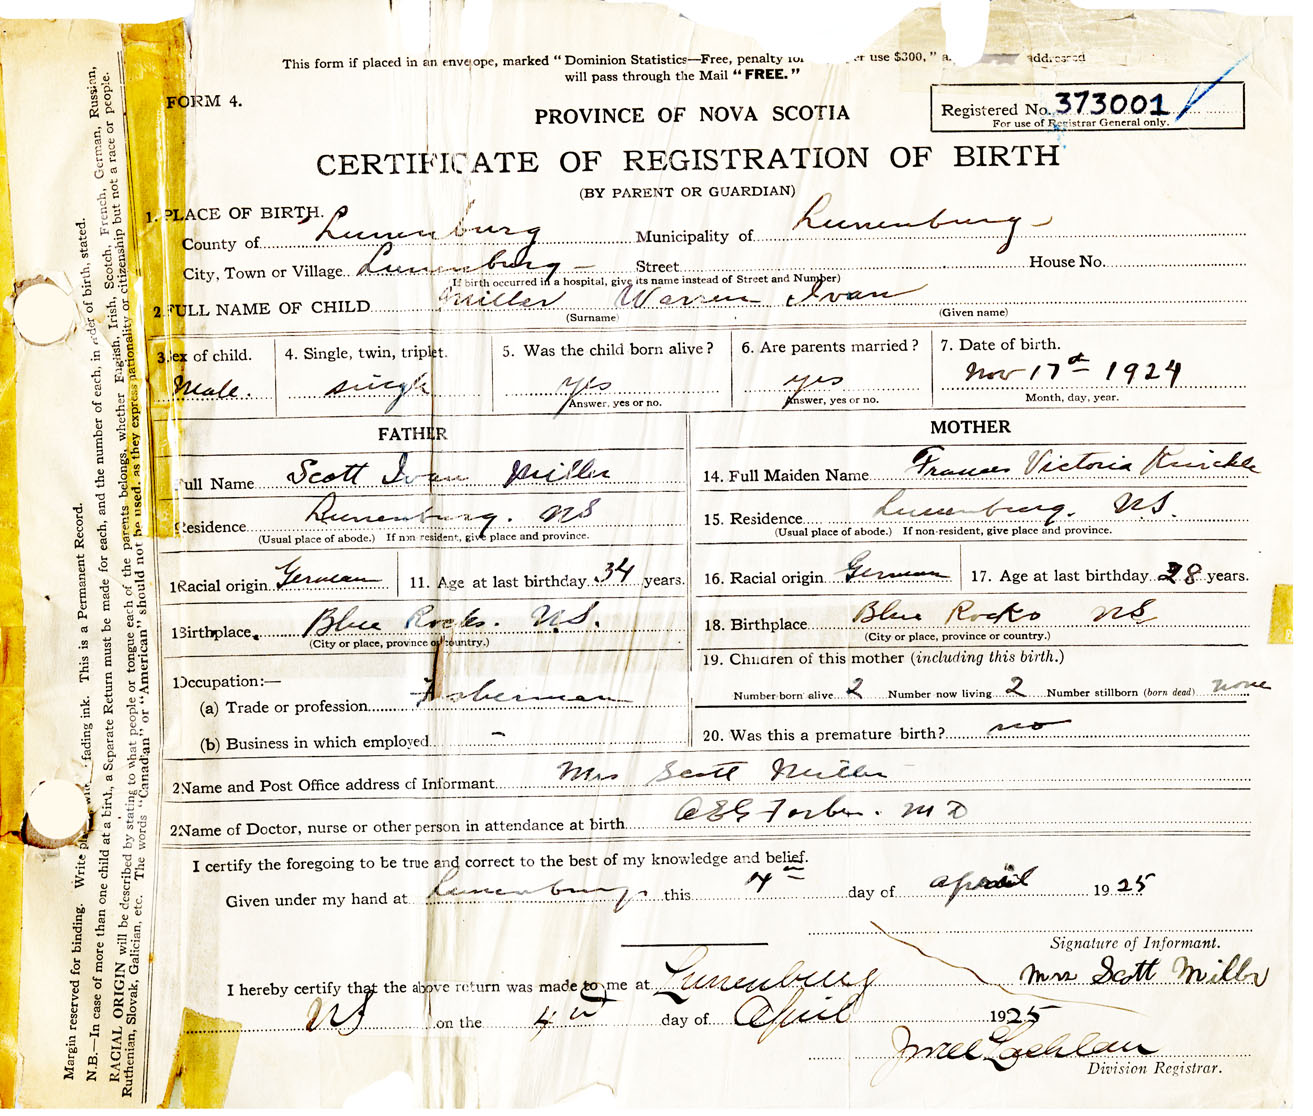 This form if placed in an envelope, marked "Dominion Statistics—Free, penalty for use $300," addressed
will pass through the Mail "FREE."
FORM 4.
PROVINCE OF NOVA SCOTIA
Registered No. 373001
For use of Registrar General only.
CERTIFICATE OF REGISTRATION OF BIRTH
(BY PARENT OR GUARDIAN)
1. PLACE OF BIRTH.
County of Lunenburg Municipality of Lunenburg
City, Town or Village Lunenburg Street House No.
If birth occurred in a hospital, give its name instead of Street and Number)
2 FULL NAME OF CHILD Miller Warren Ivan
(Surname) (Given name)
3. Sex of child. 4. Single, twin, triplet. 5. Was the child born alive? 6. Are parents married? 7. Date of birth.
Male. single yes yes Nov 17th 1924
Answer, yes or no. Answer, yes or no. Month, day, year.
FATHER MOTHER
Full Name Scott Ivan Miller 14. Full Maiden Name Frances Victoria Knickle
Residence Lunenburg. NS 15. Residence Lunenburg. N.S.
(Usual place of abode.) If non resident, give place and province. (Usual place of abode.) If non-resident, give place and province.
1 Racial origin German 11. Age at last birthday 34 years. 16. Racial origin German 17. Age at last birthday 28 years.
1 Birthplace. Blue Rocks. N.S. 18. Birthplace Blue Rocks NS
(City or place, province or country.) (City or place, province or country.)
19. Children of this mother (including this birth.)
Occupation:—
(a) Trade or profession Fisherman Number born alive 2 Number now living 2 Number stillborn (born dead) none
(b) Business in which employed - 20. Was this a premature birth? no
2 Name and Post Office address of Informant Mrs Scott Miller
2 Name of Doctor, nurse or other person in attendance at birth M D
I certify the foregoing to be true and correct to the best of my knowledge and belief.
Given under my hand at Lunenburg this 4th day of April 1925
Signature of Informant.
Mrs Scott Miller
I hereby certify that the above return was made to me at Lunenburg
NS on the 4th day of April 1925
Division Registrar.
Margin, reserved for binding. Write plainly with fading ink. This is a Permanent Record.
N.B.—In case of more than one child at a birth, a Separate Return must be made for each, and the number of each, in order of birth, stated.
RACIAL ORIGIN will be described by stating to what people or tongue each of the parents belongs, whether English, Irish, Scotch, French, German, Russian,
Ruthenian, Slovak, Galician, etc. The words "Canadian" or "American" should not be used, as they express nationality or citizenship but not a race or people.